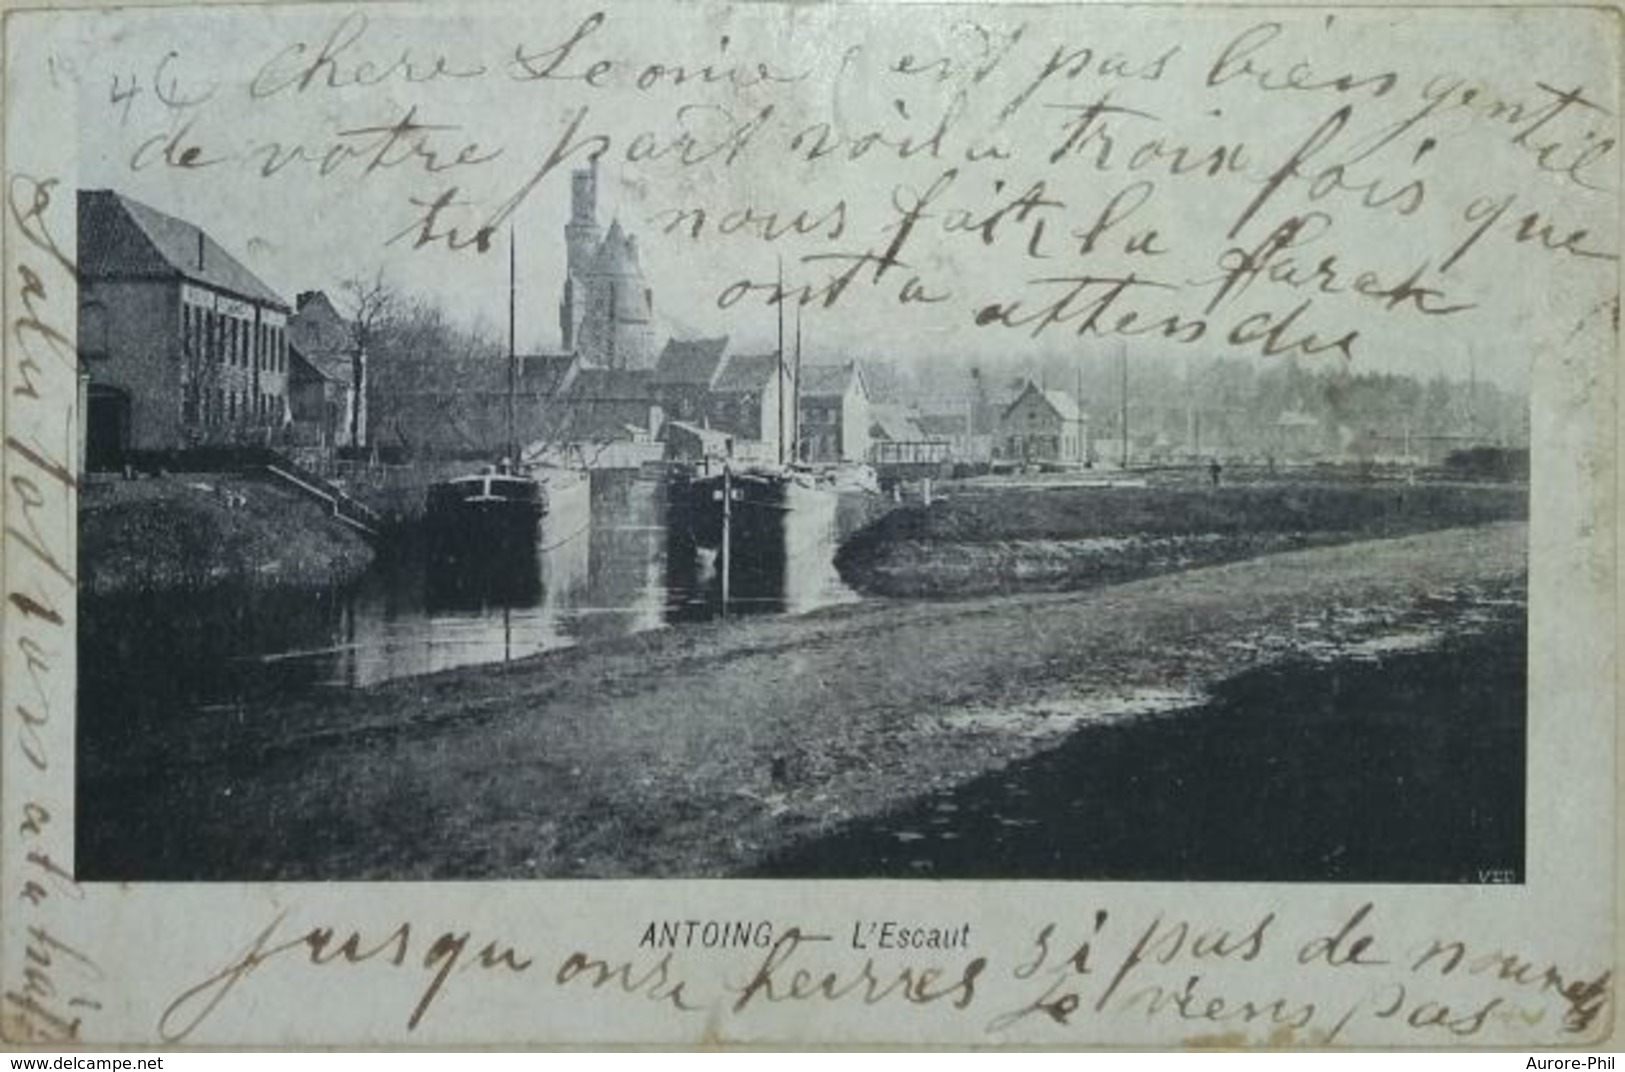 46 Chere Leonie c'est pas bien gentil
de votre part voila troix fois que
tu nous fait la farak
ont a attendu
ANTOING — L'Escaut
jusqu onze heurres si pas de nouvelles
Je viens pas
Salu tat
VED
www.delcampe.net
Aurore-Phil